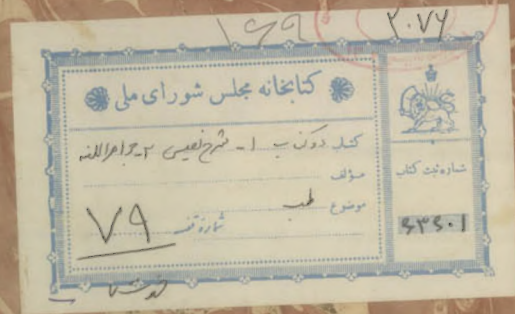 ۱۶۹
۳۰۷۶
کتابخانه مجلس شورای ملی
کتاب دو کتاب ۱- شرح نفیسی ۲- جواهر اللغه
مؤلف
موضوع طب
شماره قفسه ۷۹
شماره ثبت کتاب
۶۳۶۰۱